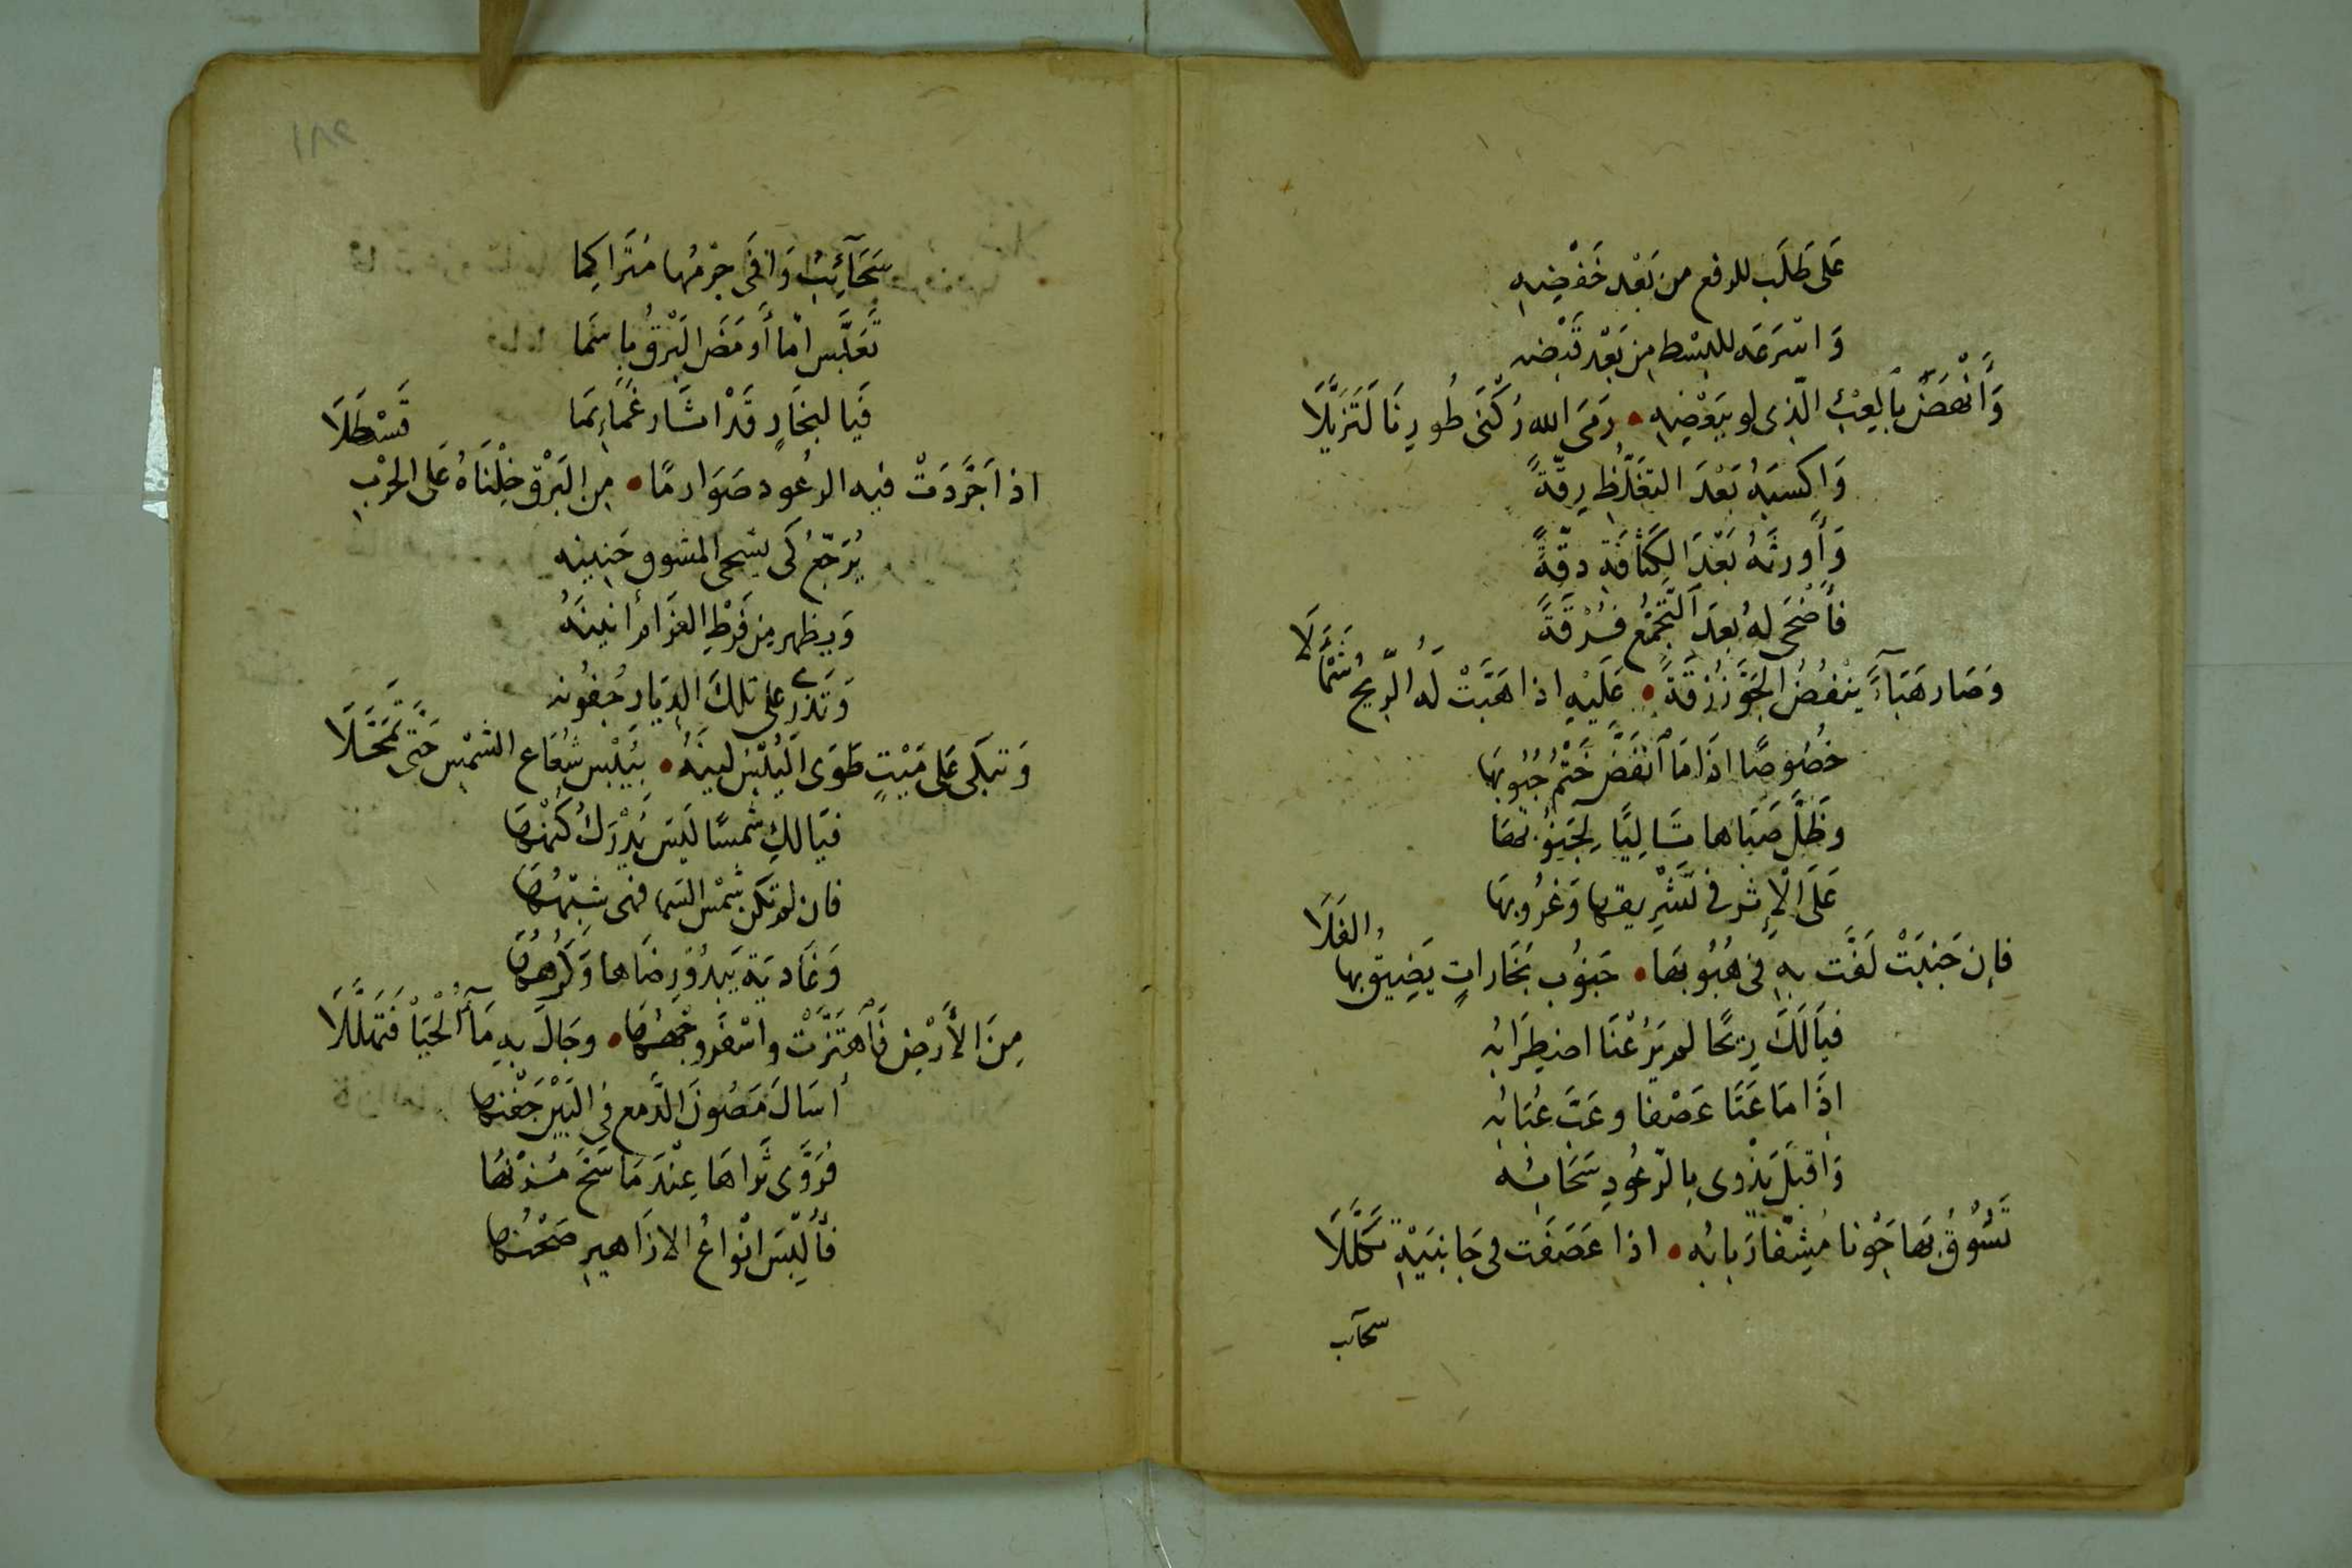 عَلى طَلَب للرفع من بَعْد خَفْضِهِ
وَاسْرَعَه للبسْط مِن بَعْد قَبْضه
وَأَنْهَضَ بِالعِبْءِ الّذى لو بِبَعْضِهِ • رَمَى الله رُكْنَى طُورِنَا لَتَزَيَّلَا
وَاكسَبَهُ بَعْدَ التغَلُّظِ رِقّةً
وَأَورثَهُ بَعْدَ الكَثَافَةِ دقّةً
فَأَضْحَى لهُ بَعدَ التَّجَمُّع فُرْقَةً
وَصَار هَبَاءً يَنْفُضُ الجَوَّ زُرْقَةً • عَلَيْهِ اذا هَبَّتْ لَهُ الرِّيحُ شَمْأَلَا
خصُوصًا اذَا مَا انْفَضَّ خَتْمُ جُيُوبهَا
وظَلَّ صَبَاهَا تَالِيًا لِجَنُوبهَا
عَلَى الْإِثر فى تَشْرِيقهَا وَغرُوبهَا
فإن جَنبَتْ لَفَّت بهِ فى هُبُوبهَا • جَنوُب بُخَاراتٍ يَضِيق بها الفَلَا
فيَالَكَ رِيحًا لم يَرُعْنَا اضطِرَابُه
اذَا مَا عَتَا عَصْفا وعَبَّ عُبَابُه
وَاقبَلَ يَدْوى بِالرّعُودِ سَحَابُه
تَسُوقُ بهَا جَوْنا مُشِفّا رَبَابُه • اذا عَصَفَت فى جَانِبَيْهِ تَكَلَّلَا
سحآئب
١٨٢
سَحَآئِبُ وَافَى جِرْمُها مُتَراكِمَا
تَعَبَّس امّا أَومَضَ البَرْقُ بَاسِمَا
فَيَا لبخَارٍ قَدْ اثَار غَمَائِمَا
اذا جَرَّدَتْ فيه الرعُود صَوَارمًا • مِن البَرْق خِلْنَاهُ عَلى الحَرْبِ قَسْطَلَا
يُرَجّعُ كَى يشجى المشوق حَنِينه
وَيظهر مِن فَرْطِ الغَرَامِ أَنينَهُ
وَتذرى على تلكَ الدِيَار جُفُونه
وَتبكى عَلى مَيْتٍ طَوَى اليُبْسُ لينَهُ • بِيُبْس شُعَاع الشمْس حَتى تَمَحَّلَا
فيَالكِ شمسًا لَيسَ يُدْرَكُ كُنْهُهَا
فان لم تكن شمْس السَما فهى شبْهُهَا
وَغَاديَة يَبدُو رِضَاها وَكُرْهُهَا
مِنَ الأَرْضِ فَاهْتَزَّتْ واسْفَر وجْهُهَا • وجَالَ بهِ مَآءُ الْحَيَا فَتَهَلَّلَا
أسَالَ مَصُونَ الدَّمع فى البَيْن جَفْنهَا
فَرَوَّى ثَراهَا عِنْدَمَا سَحَّ مُزْنُهَا
فأُلبِسَ انْوَاعُ الازَاهيرِ صَحْنُهَا